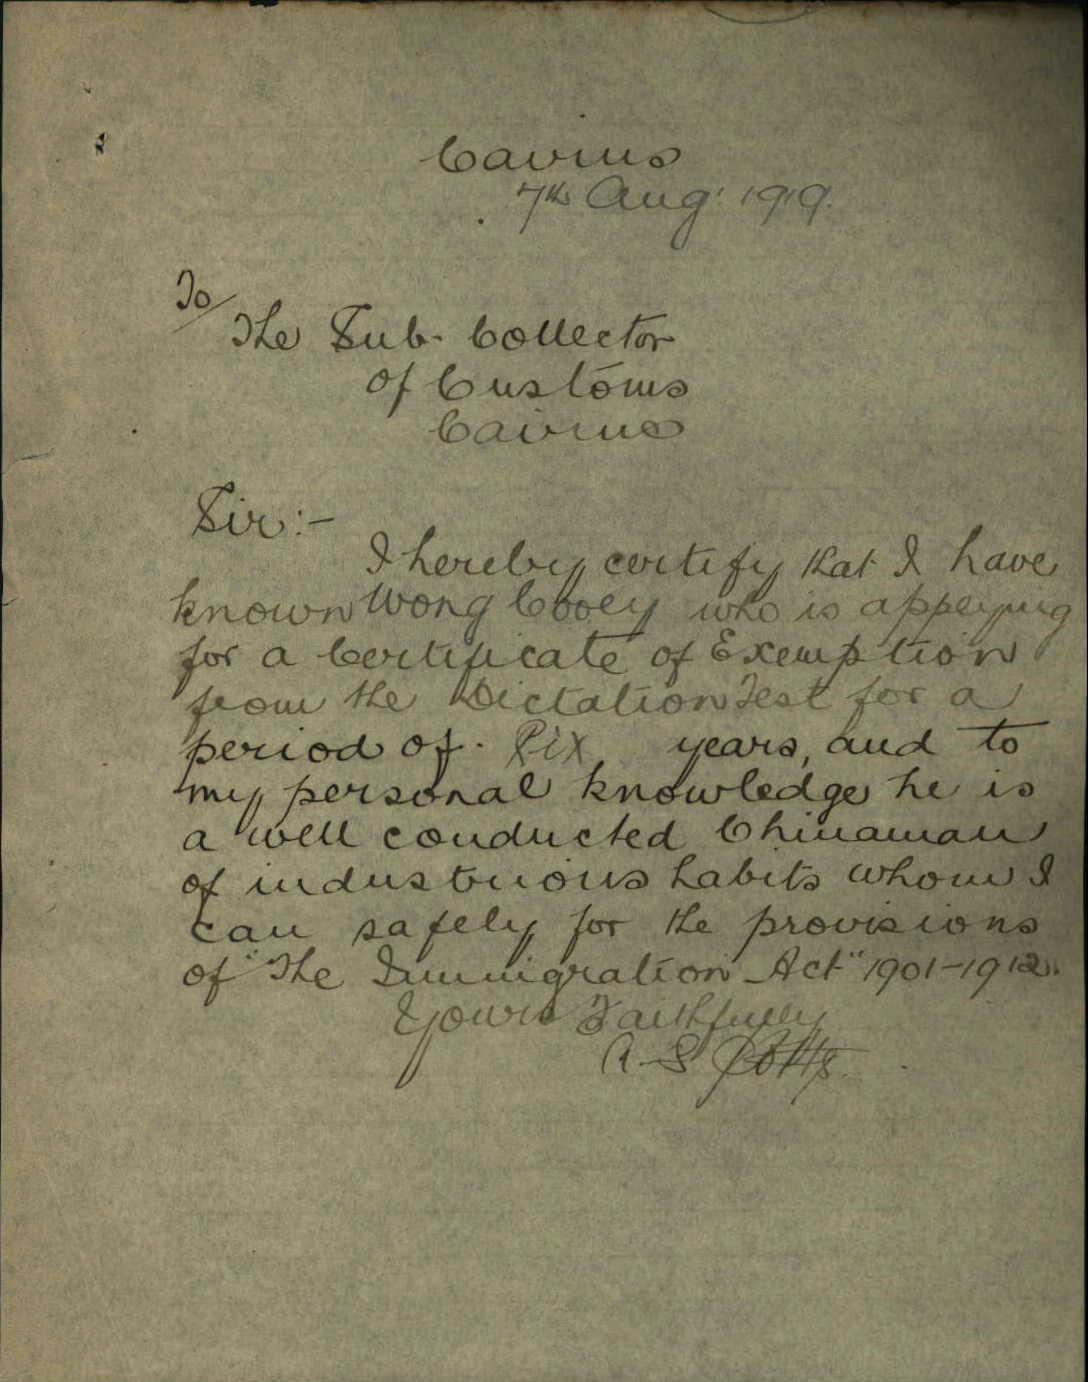 Cairns
7th Aug' 1919.
To/
The Sub. Collector
of Customs
Cairns
Sir:-
I hereby certify that I have
known Wong Cooey who is applying
for a Certificate of Exemption
from the Dictation Test for a
period of. Six years, and to
my personal knowledge he is
a well conducted Chinaman
of industrious habits whom I
can safely for the provisions
of "The Immigration Act" 1901-1912.
Yours Faithfully
A. S. Potts.